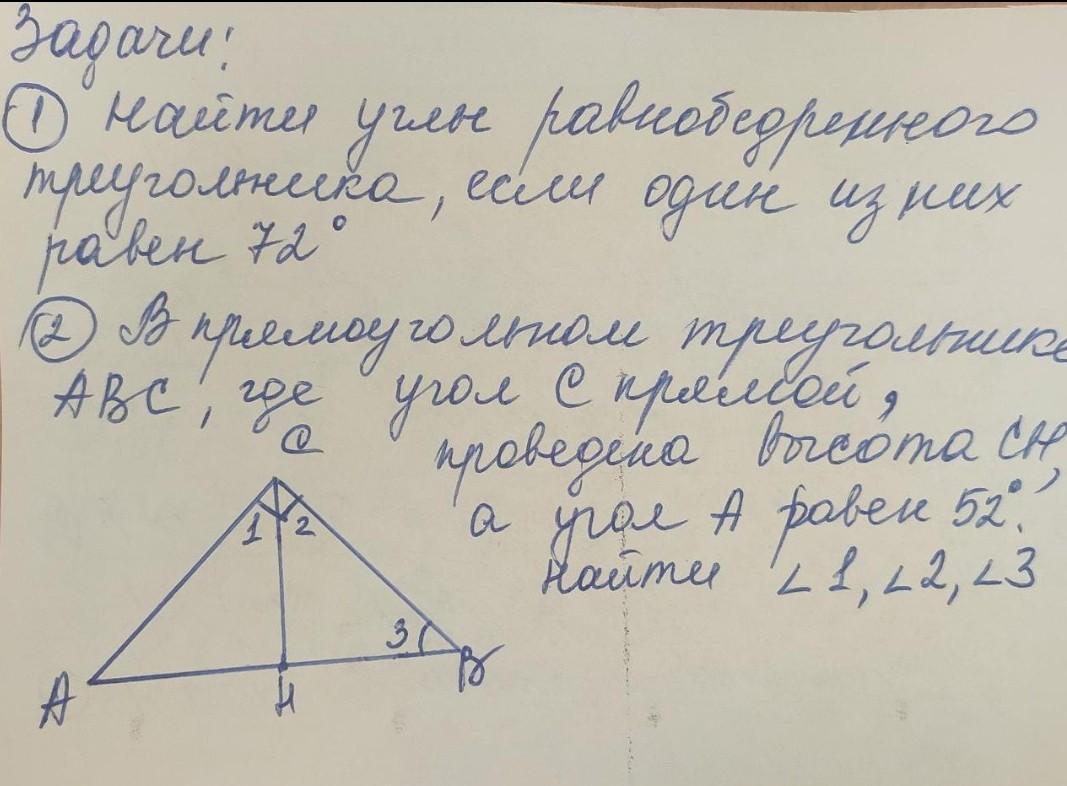 Задачи:
① Найти углы равнобедренного
треугольника, если один из них
равен 72°
② В прямоугольном треугольнике
ABC, где угол C прямой,
проведена высота CH,
а угол A равен 52°.
Найти ∠1, ∠2, ∠3
C
1 2
3
A
H
B